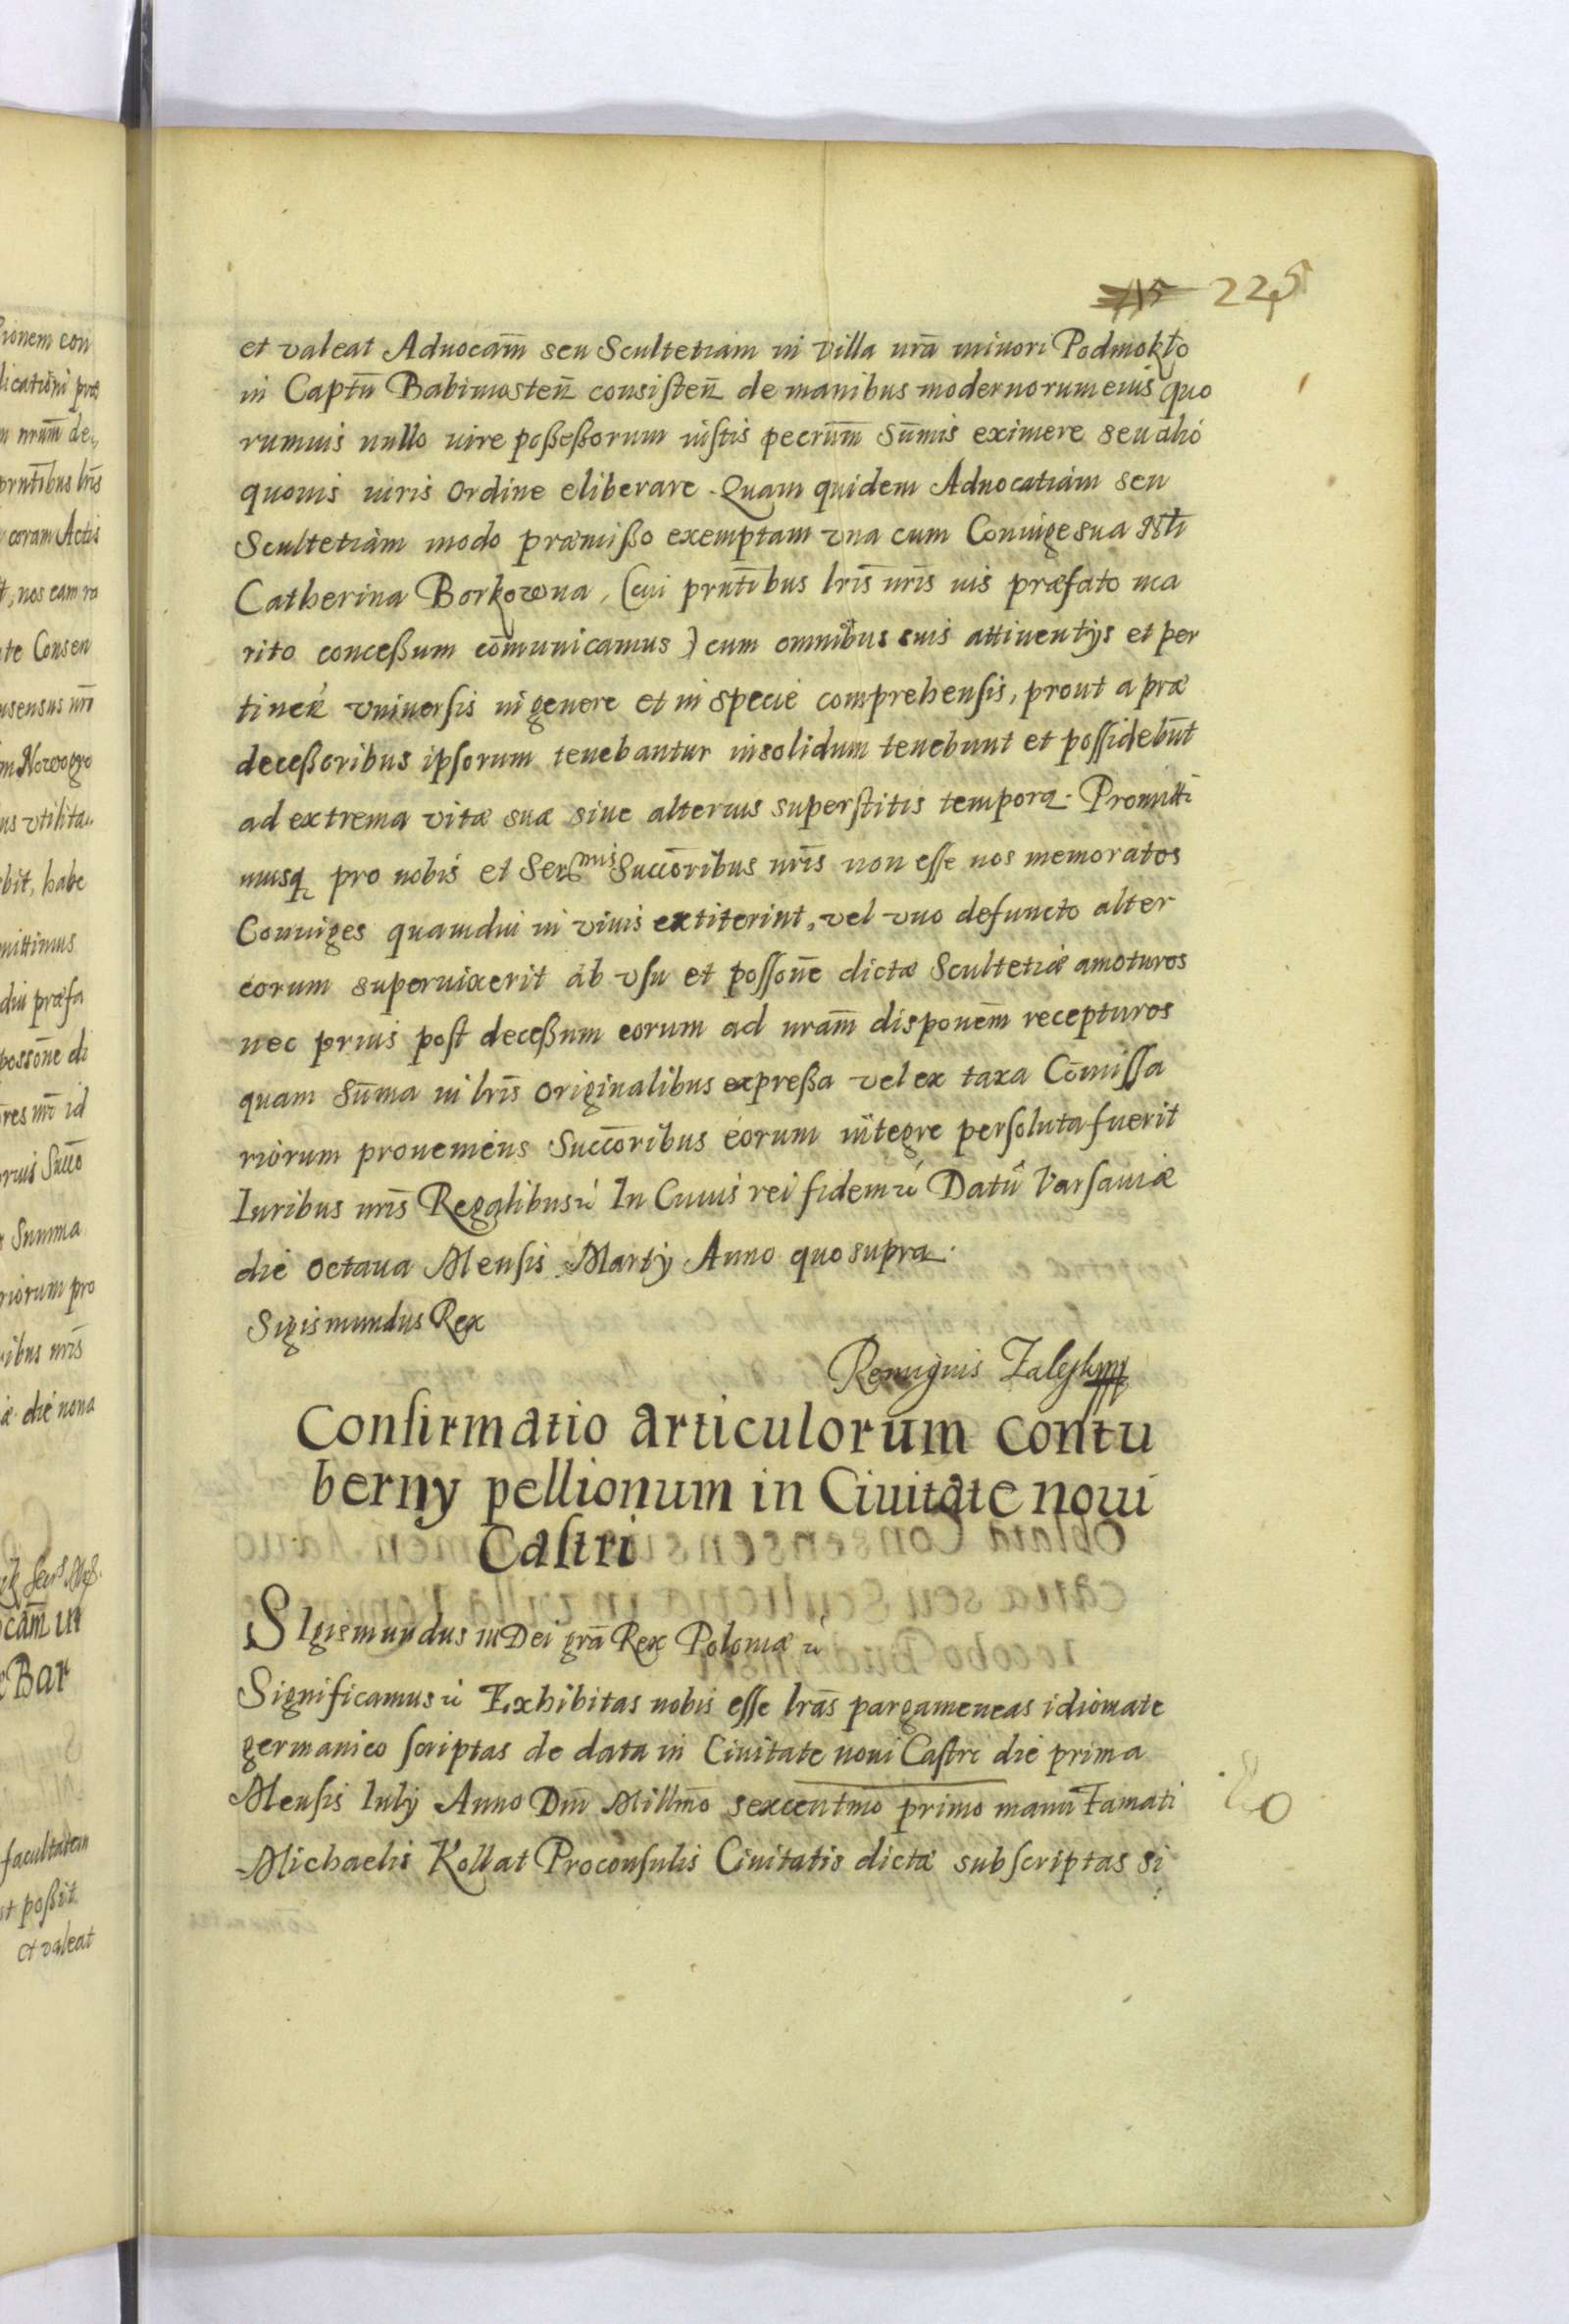 225
et valeat Aduocam̅ seu Scultetiam in villa nr̅a minori Podmokło
in Capt̅u Babimosten̅ consisten̅ de manibus modernorum eius quo
rumuis nullo iure poßeßorum iustis pecrum̅ Su̅mis eximere seu alio
quouis iuris ordine eliberare. Quam quidem Aduocatiam seu
Scultetiam modo præmißo exemptam vna cum Coniuge sua
Catherina Borkowna, (cui prnt̅ibus lr̅is nr̅is ius præfato ma
rito conceßum co̅municamus) cum omnibus suis attinentijs et per
tinen̅ vniuersis in genere et in specie comprehensis, prout a præ
deceßoribus ipsorum tenebantur insolidum tenebunt et possidebu̅t
ad extrema vitæ suæ siue alterius superstitis tempora. Promitti
musq pro nobis et Ser^mis Succo̅ribus nr̅is non esse nos memoratos
Coniuges quamdiu in viuis extiterint, vel vno defuncto alter
eorum superuixerit ab vsu et posson̅e dictæ Scultetiæ amoturos
nec prius post deceßum eorum ad nram̅ disponem̅ recepturos
quam Su̅ma in lr̅is originalibus expreßa vel ex taxa Co̅missa
riorum proueniens Succo̅ribus eorum integre persoluta fuerit
Iuribus nr̅is Regalibus &c In Cuius rei fidem &c Datu̅ Varsauiæ
die octaua Mensis Martij Anno quo supra.
Sigismundus Rex
Remigius Zaleskj
Confirmatio articulorum contu
bernij pellionum in Ciuitate noui
Castri
SIgismundus III Dei gra̅ Rex Poloniæ &c
Significamus &c Exhibitas nobis esse lr̅as pargameneas idiomate
germanico scriptas de data in Ciuitate noui Castri die prima
Mensis Iulij Anno Dni̅ Millmo̅ sexcentmo̅ primo manu Famati
Michaelis Kollat Proconsulis Ciuitatis dictæ subscriptas si